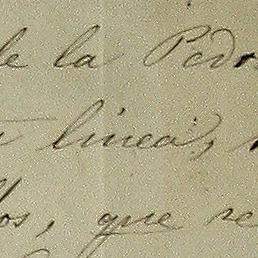 de la Pedr
linea,
los, que se